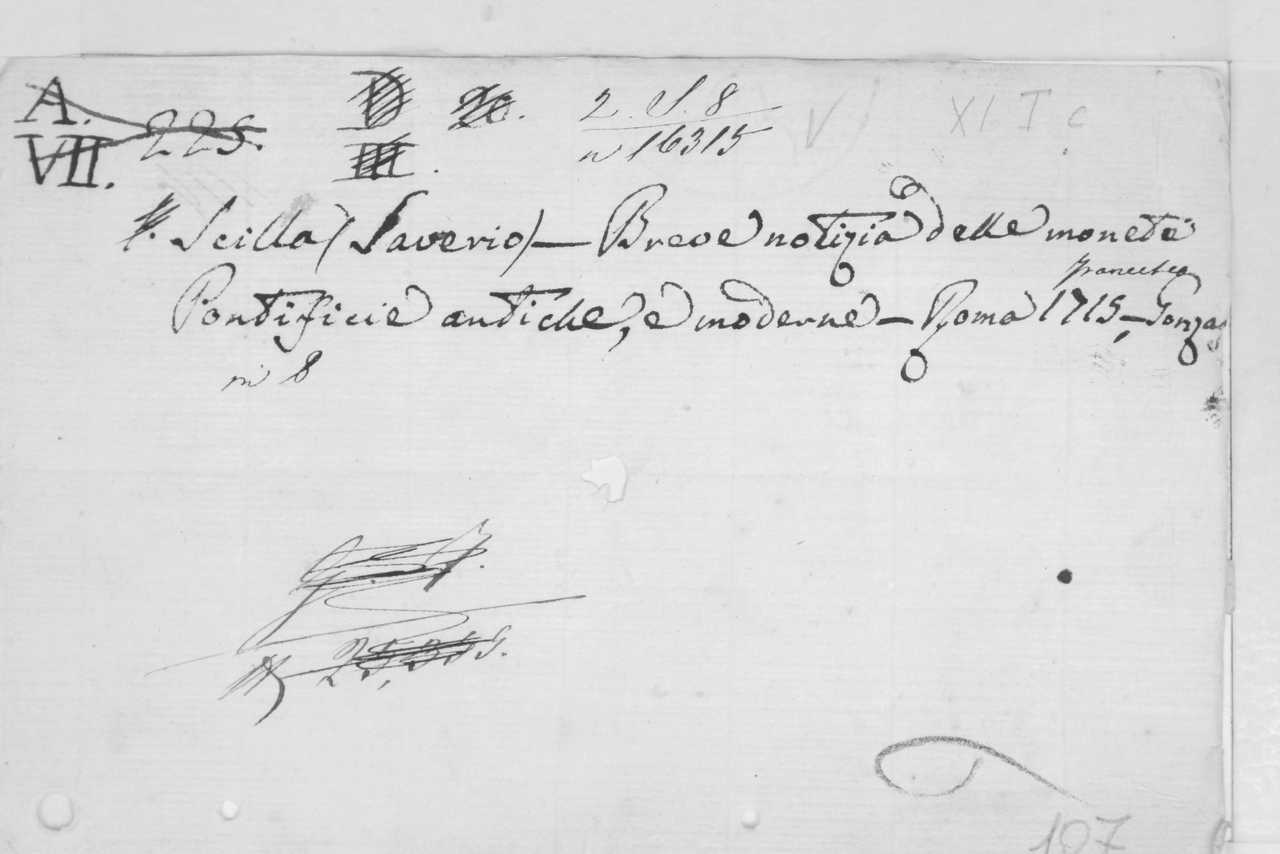 A. 225. D 20. 2. S. 8 V XI I c
VII. III. n 16315
Scilla (Saverio) — Breve notizia delle monete
Francesco
Pontificie antiche, e moderne — Roma 1715, — Gonzag
in 8
25,355.
107